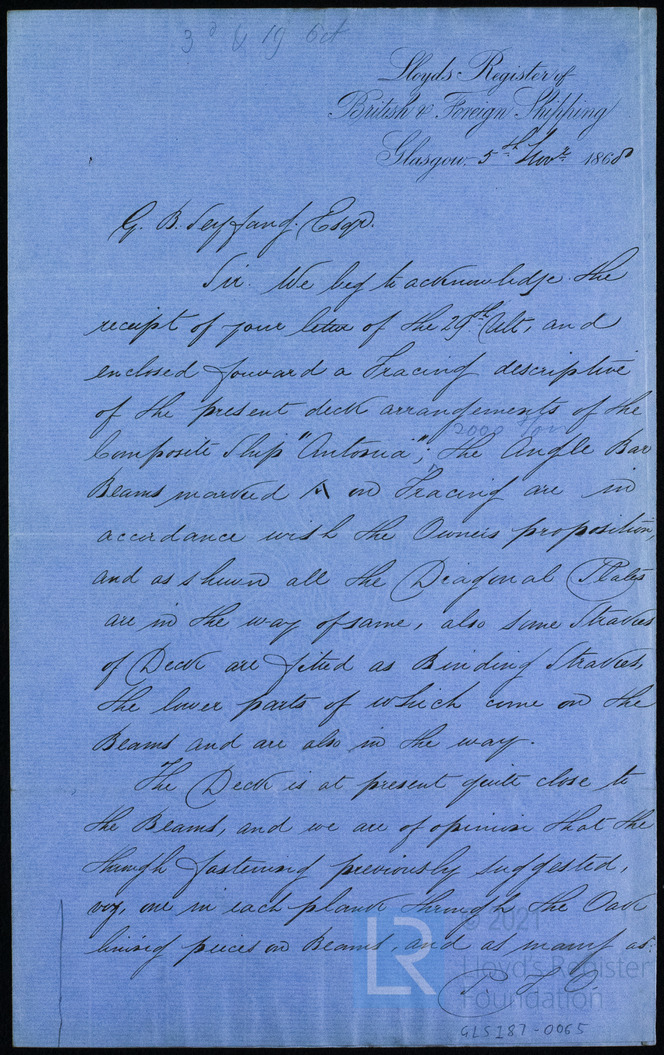 Lloyds Register of
British & Foreign Shipping
Glasgow. 5th Novr 1868
G. B. Seyfang. Esqr.
Sir. We beg to acknowledge the
receipt of your letter of the 29th Ult, and
enclosed forward a Tracing descriptive
of the present deck arrangements of the
2000 Tons
Composite Ship "Antonia"; the Angle Bar
Beams marked A on Tracing are in
accordance with the Owners proposition,
and as shewn all the Diagonal Plates
are in the way of same, also some Strakes
of Deck are fitted as Binding Strakes,
the lower parts of which come on the
Beams and are also in the way.
The Deck is at present quite close to
the Beams, and we are of opinion that the
through fastening previously suggested,
viz, one in each plank through the Oak
lining pieces on Beams, and as many as.
P. T. O.
© 2021
LR
Lloyd's Register
Foundation
GLS187-0065